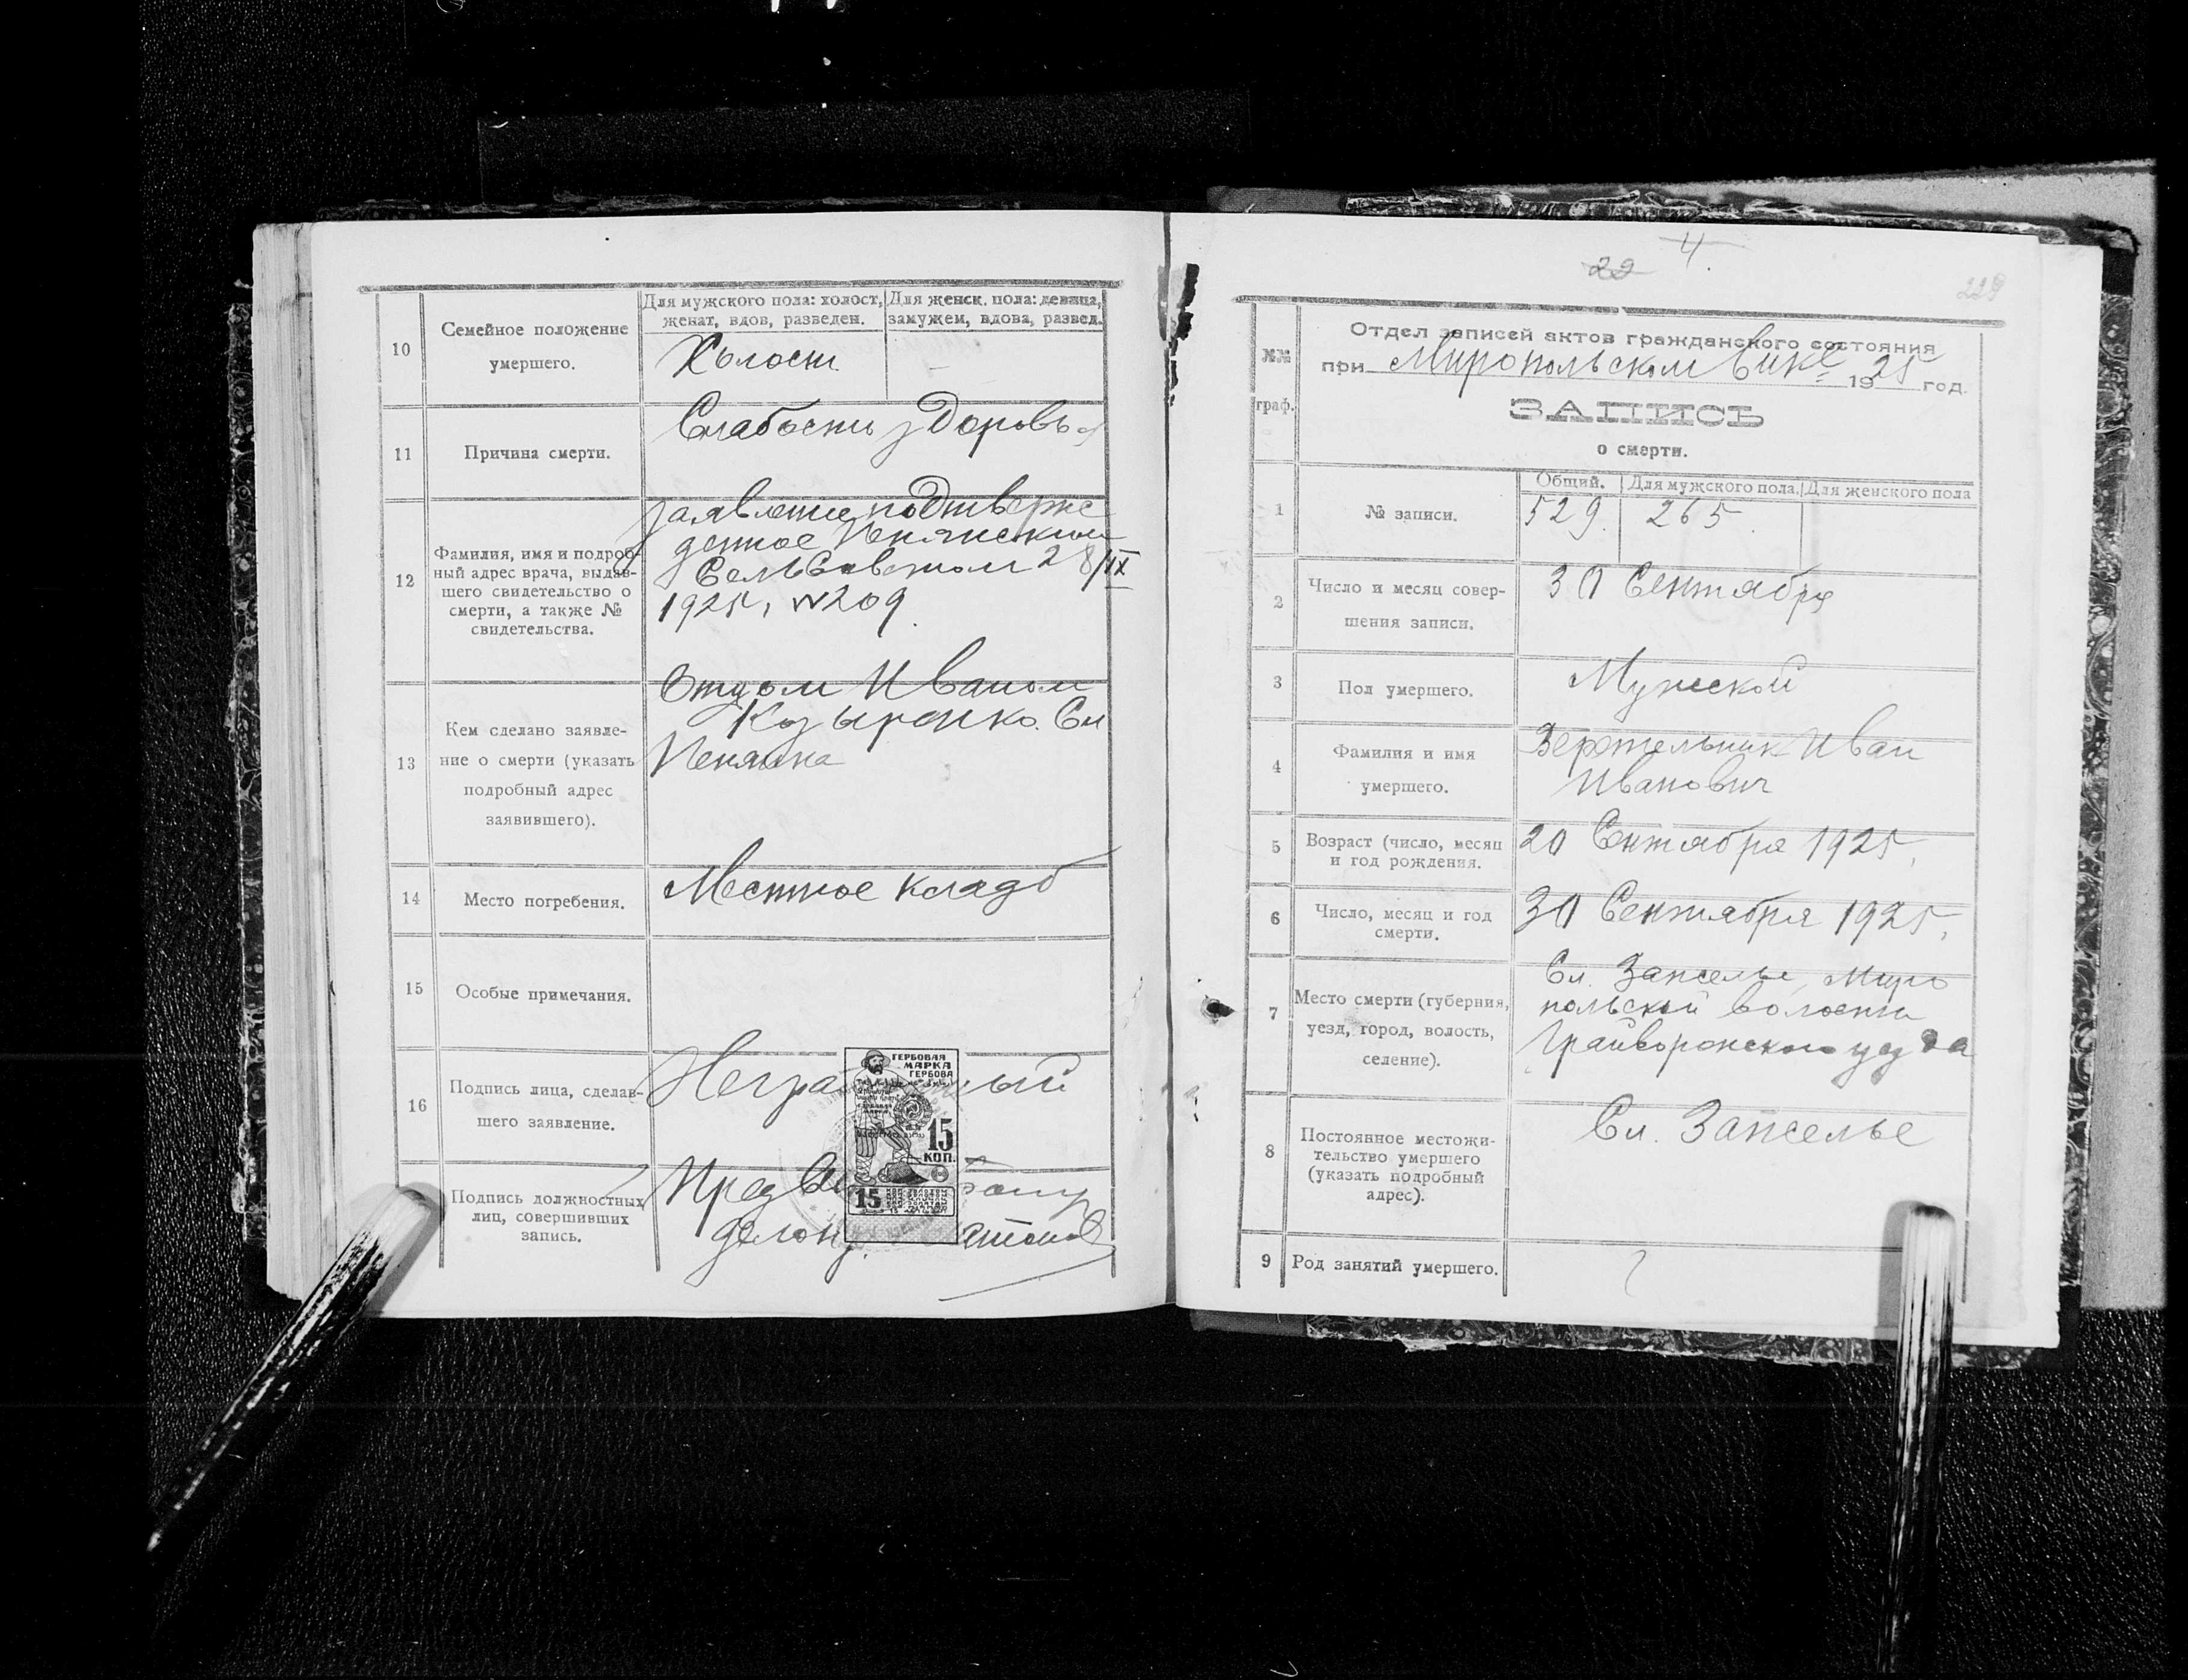 10
Семейное положение
умершего.
Для мужского пола: холост,
женат, вдов, разведен.
Для женск. пола: девица,
замужем, вдова, развед.
Холост
—
11
Причина смерти.
Слабость здоровья
12
Фамилия, имя и подроб-
ный адрес врача, выдав-
шего свидетельство о
смерти, а также №
свидетельства.
заявление подтверж
денное Пенянским
СельСоветом 28/IX
1925, №209
13
Кем сделано заявле-
ние о смерти (указать
подробный адрес
заявившего).
Отцом Иваном
Козыренко Сл
Пенянка
14
Место погребения.
Местное кладб
15
Особые примечания.
16
Подпись лица, сделав-
шего заявление.
ГЕРБОВАЯ
МАРКА
ГЕРБОВА
15
КОП.
15
Подпись должностных
лиц, совершивших
запись.
Пред
4
22
229
№№
граф.
Отдел записей актов гражданского состояния
при Миропольском Вике 1925 год.
ЗАПИСЬ
о смерти.
1
№ записи.
Общий. Для мужского пола. Для женского пола
529. 265
2
Число и месяц совер-
шения записи.
30 Сентября
3
Пол умершего.
Мужской
4
Фамилия и имя
умершего.
Иван
Иванович
5
Возраст (число, месяц
и год рождения.
20 Сентября 1925,
6
Число, месяц и год
смерти.
30 Сентября 1925,
7
Место смерти (губерния,
уезд, город, волость,
селение).
Сл. Запселье, Миро
польской волости
Грайворонского уезда
8
Постоянное местожи-
тельство умершего
(указать подробный
адрес).
Сл. Запселье
9
Род занятий умершего.